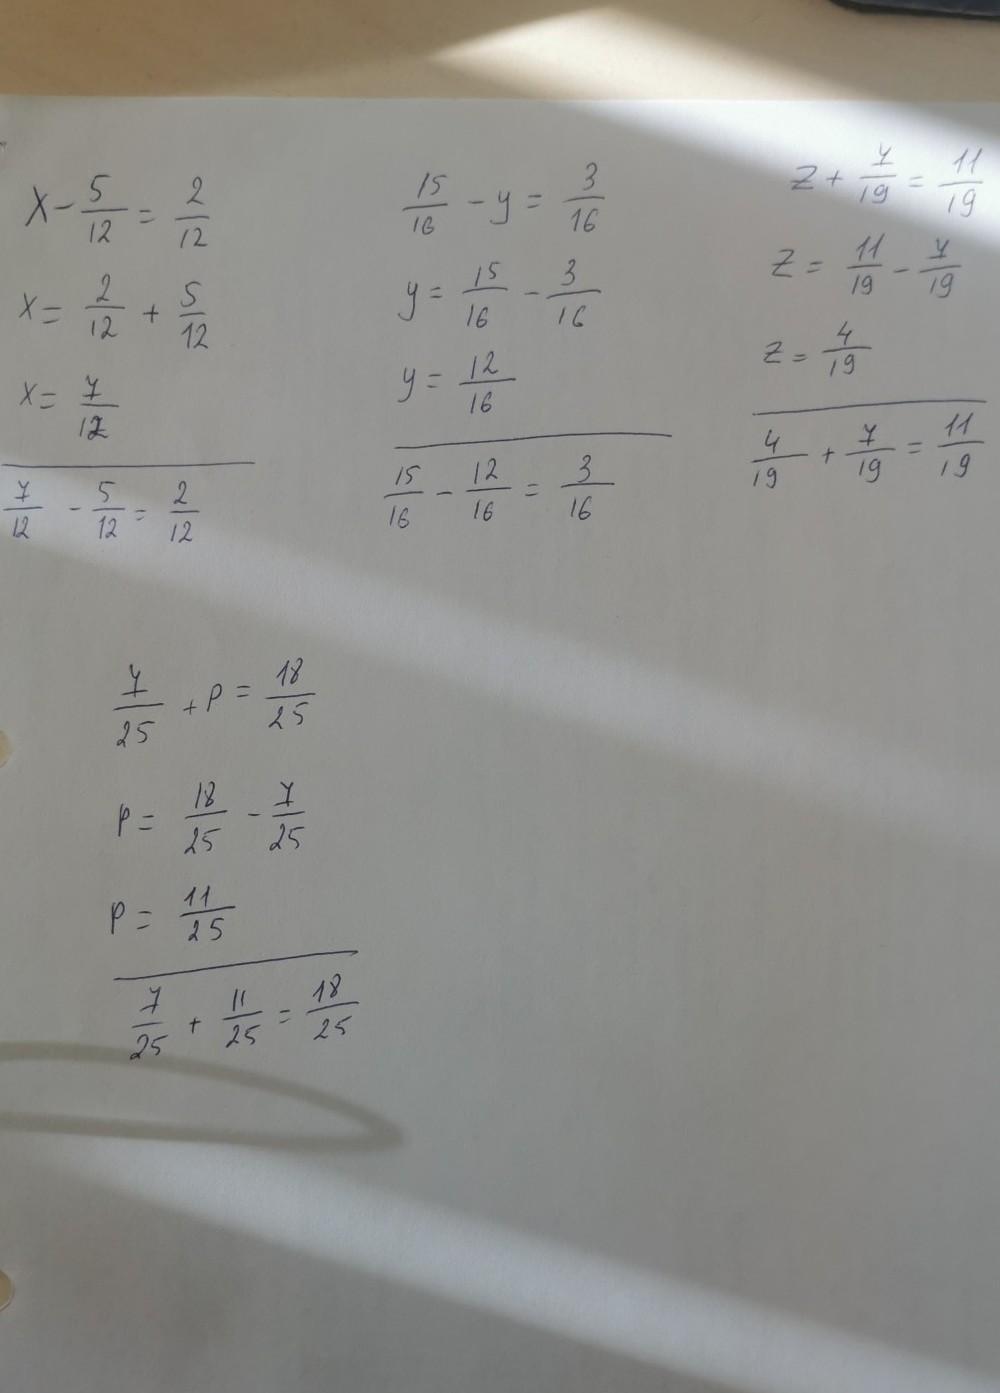 x - 5/12 = 2/12
x = 2/12 + 5/12
x = 7/12
7/12 - 5/12 = 2/12
15/16 - y = 3/16
y = 15/16 - 3/16
y = 12/16
15/16 - 12/16 = 3/16
z + 7/19 = 11/19
z = 11/19 - 7/19
z = 4/19
4/19 + 7/19 = 11/19
7/25 + p = 18/25
p = 18/25 - 7/25
p = 11/25
7/25 + 11/25 = 18/25